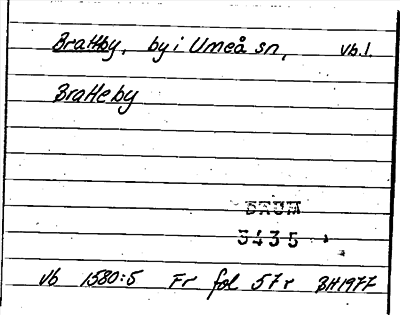 Brattby, by i Umeå sn, vb.l.
Bratteby
DAUM
3435
Vb 1580:5 Fr fol 57r BH1977